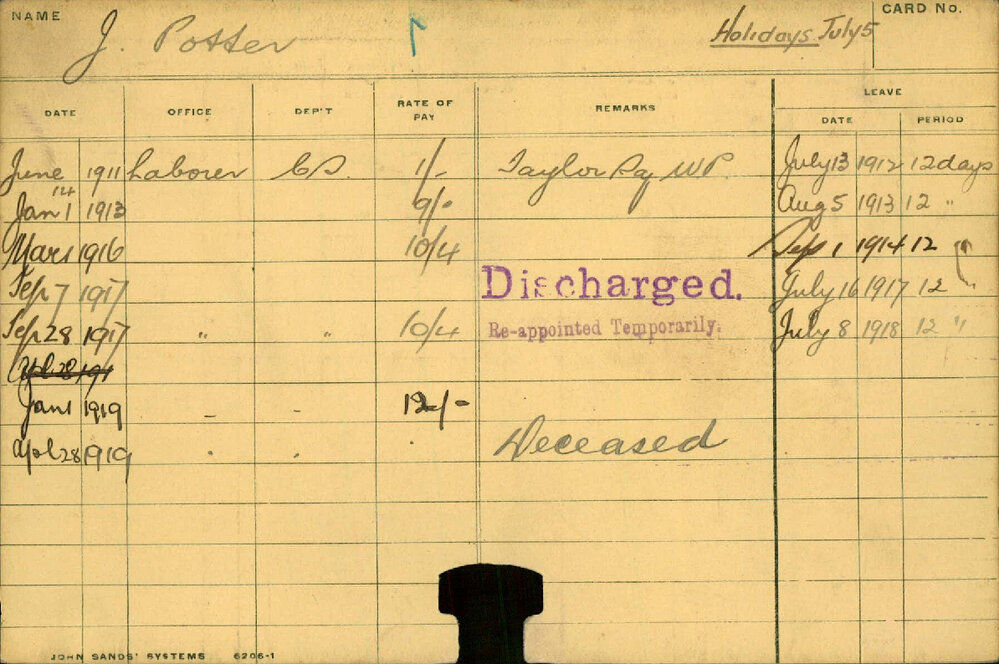 NAME J. Potter Holidays July 5 CARD No.
DATE OFFICE DEP'T RATE OF PAY REMARKS LEAVE
DATE PERIOD
June 14 1911 Laborer CS. 1/- Taylor Sq WP. July 13 1912 12 days
Jan 1 1913 9/- Aug 5 1913 12 "
Mar 1 1916 10/4 Sep 1 1914 12 "
Sep 7 1917 Discharged. July 16 1917 12 "
Sep 28 1917 " " 10/4 Re-appointed Temporarily. July 8 1918 12 "
Apl 28 191
Jan 1 1919 - - 12/-
Apl 28 1919 Deceased
JOHN SANDS' SYSTEMS 6206-1